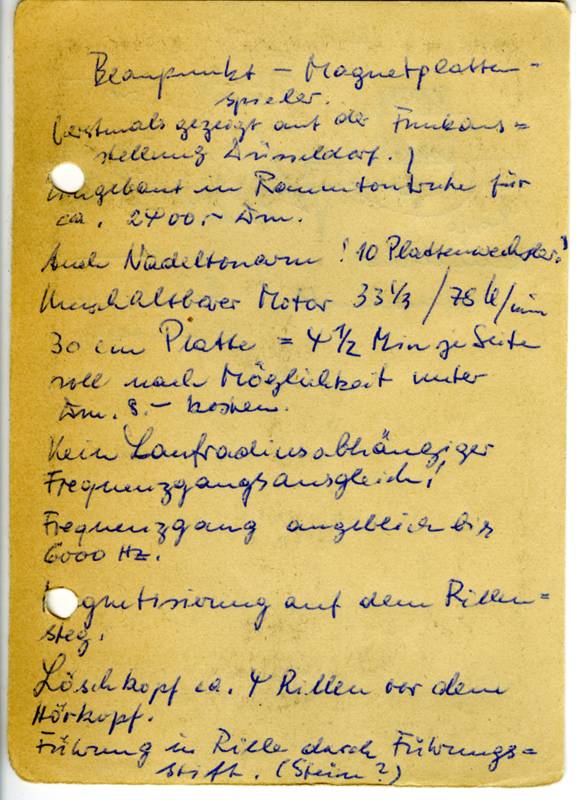 Blaupunkt – Magnetplatten-
spieler.
(erstmals gezeigt auf der Funkaus=
stellung Düsseldorf.)
eingebaut in Raumtontruhe für
ca. 2400,- Dm.
Auch Nadeltonarm ! 10 Plattenwechsler!
Umschaltbarer Motor 33 1/3 / 78 U/min
30 cm Platte = 4 1/2 Min je Seite
soll nach Möglichkeit unter
Dm. 8.- kosten.
Kein Laufradiusabhängiger
Frequenzgangsausgleich!
Frequenzgang angeblich bis
6000 Hz.
Magnetisierung auf dem Rillen=
steg.
Löschkopf ca. 4 Rillen vor dem
Hörkopf.
Führung in Rille durch Führungs=
stift. (Stein?)